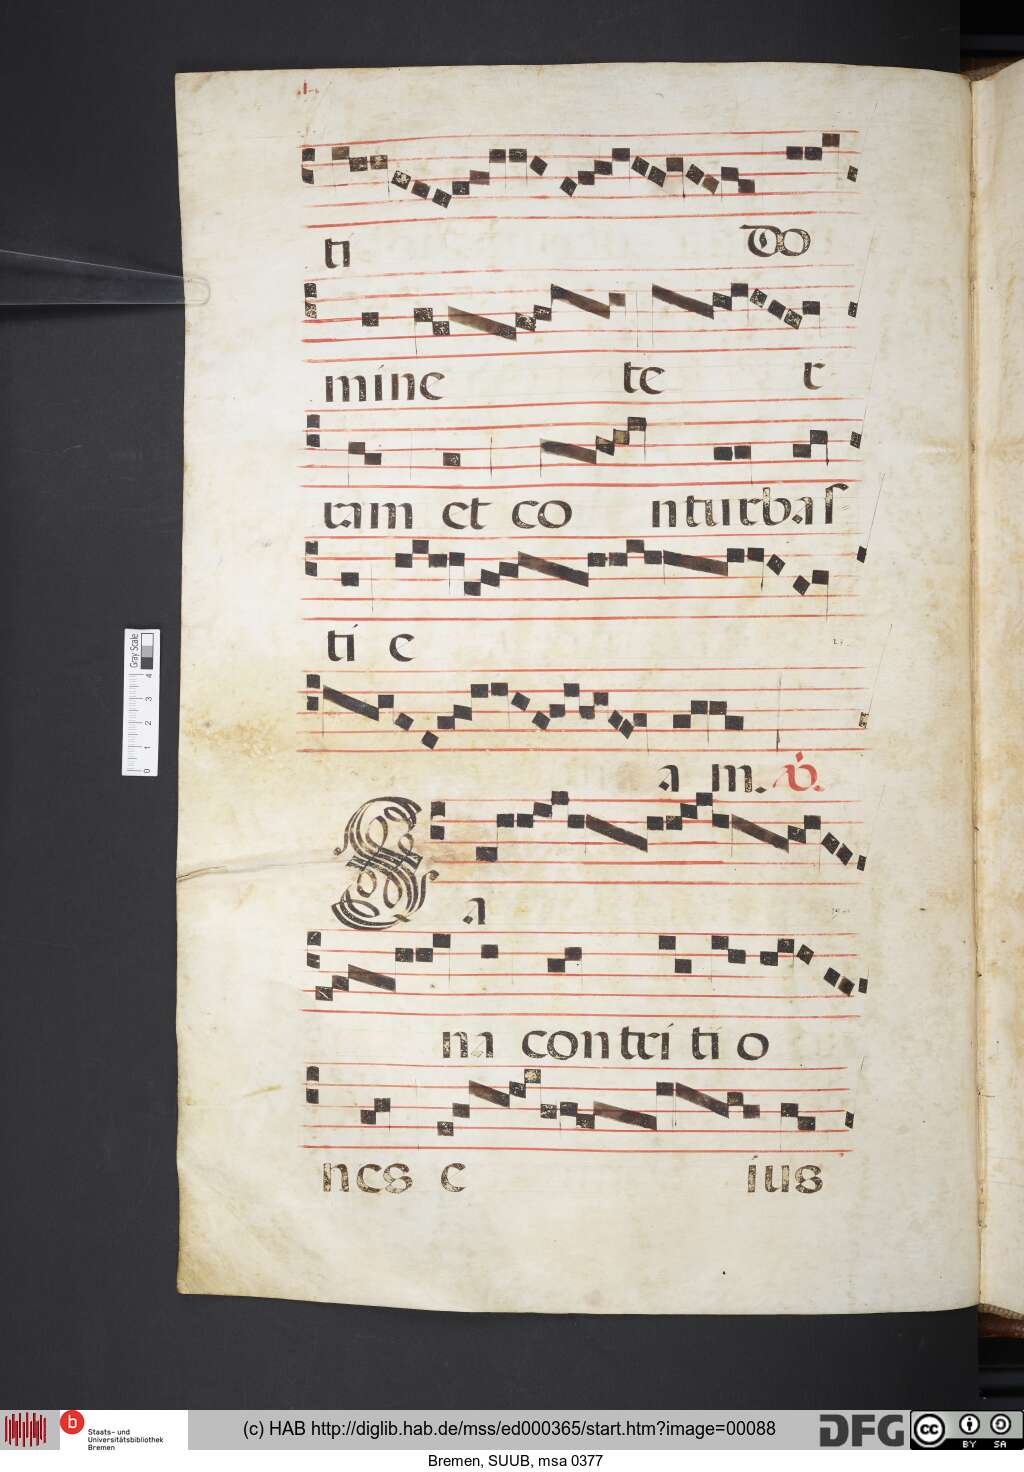 ti do
mine te r
ram et co nturbas
ti e
a m. v.
S a
na contri ti o
nes e ius
Gray Scale
0 1 2 3 4
b
Staats- und
Universitätsbibliothek
Bremen
(c) HAB http://diglib.hab.de/mss/ed000365/start.htm?image=00088
DFG
cc BY SA
Bremen, SUUB, msa 0377